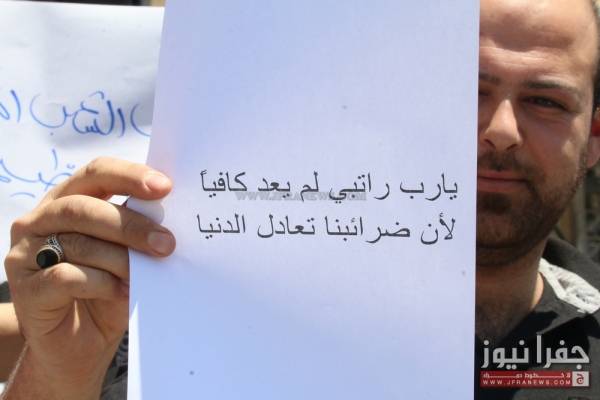 يارب راتبي لم يعد كافياً
لأن ضرائبنا تعادل الدنيا
الشعب
جفرا نيوز
WWW.JFRANEWS.COM